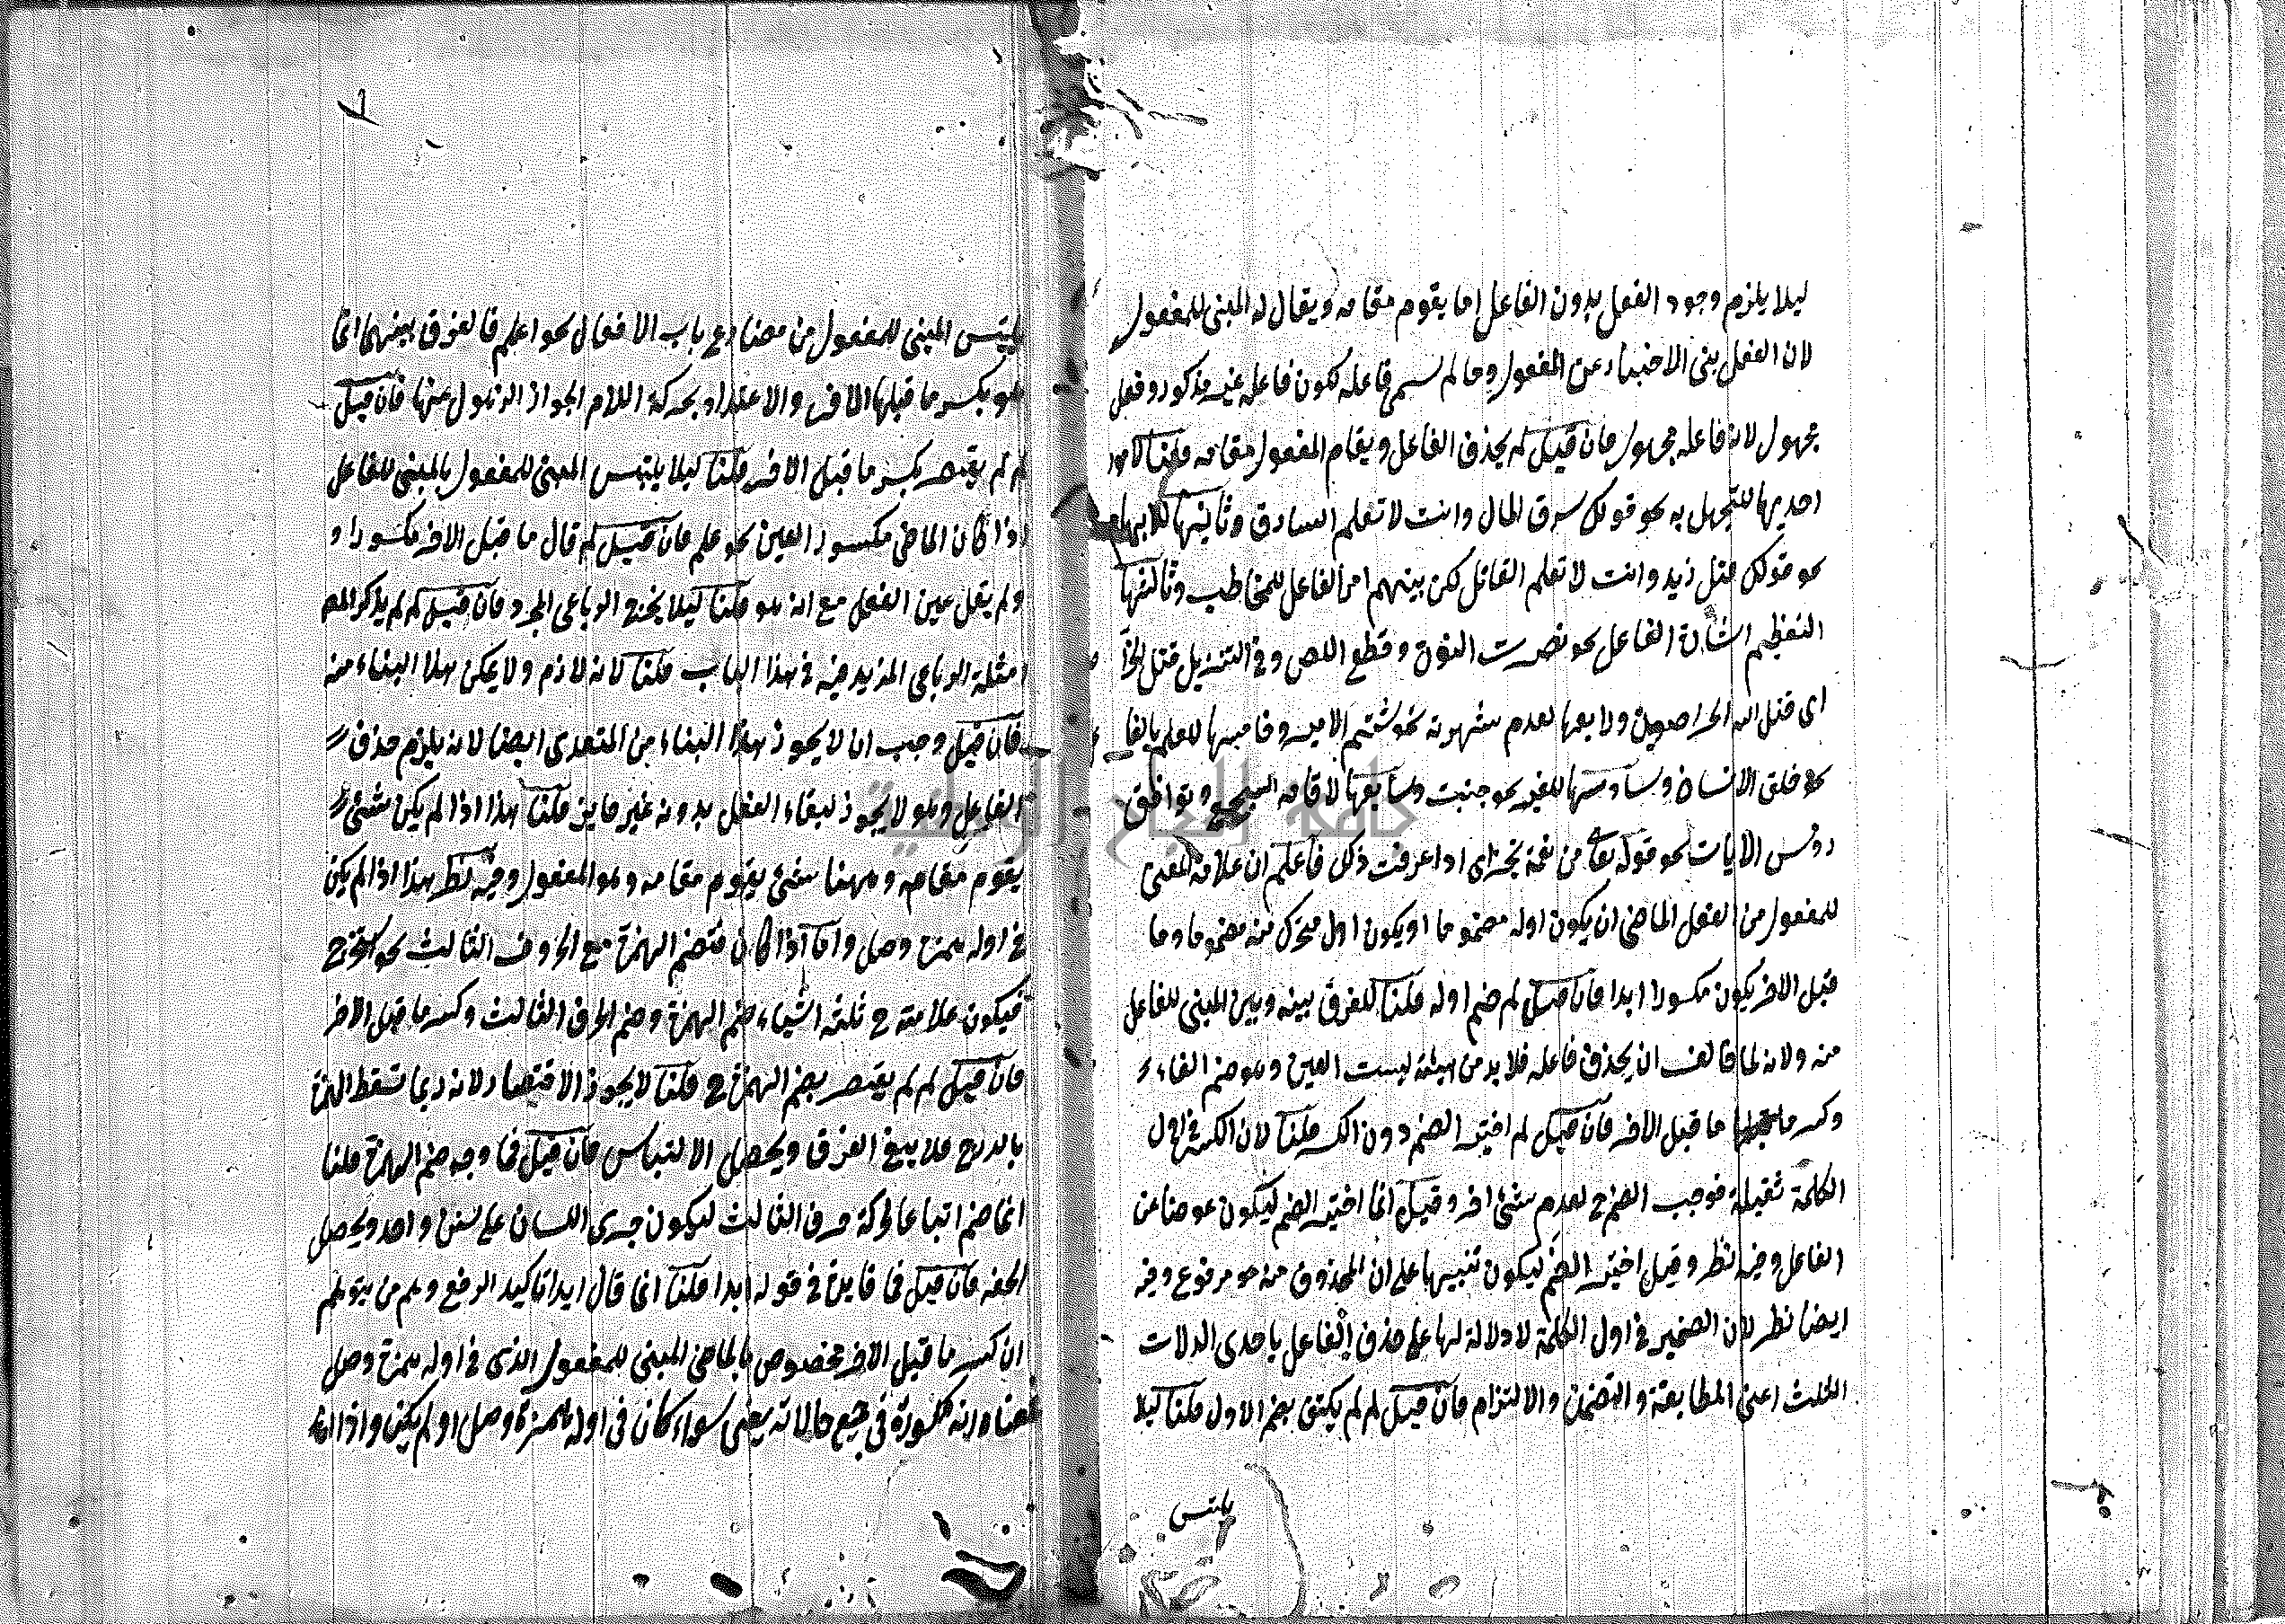 ليلا يلزم وجود الفعل بدون الفاعل اما يقوم مقامه ويقال له المبنى للمفعول
لان الفعل بنى الاخبار عن المفعول وما لم يسمى فاعله لكون فاعله غير مذكور وفعل
مجهول لان فاعله مجهول فان قيل لم يحذف الفاعل ويقام المفعول مقامه قلنا لامور
احديها للتجهل به نحو قولك سرق المال وانت لا تعلم السارق وثانيها للابهام
نحو قولك قتل زيد وانت لا تعلم القاتل لكن بينهم امر الفاعل للمخاطب وثالثها
التعظيم شان الفاعل نحو نصرت النون وقطع اللص وفى التنزيل قتل الخرا
اى قتل الله الخراصون ورابعها لعدم شهرته نحو شتم الامير وخامسها للعلم بالفا
نحو خلق الانسان وسادسها للغير نحو جنبت وسابعها لاقامه السجع وتوافق
روس الايات نحو قوله تعا من نعمة تجزى اذا عرفت ذلك فاعلم ان علامة المبنى
للمفعول من الفعل الماضى ان يكون اوله مضموما او يكون اول متحرك منه مضموما وما
قبل الاخر يكون مكسورا ابدا فان قيل لم ضم اوله قلنا للفرق بينه وبين المبنى للفاعل
منه ولانه لما خالف ان يحذف فاعله فلا بد من هيئة ليست العين وهو ضم الفاء
وكسر ما قبل الاخر فان قيل لم اختير الضم دون الكسر قلنا لان الكسر فى اول
الكلمة ثقيلة فوجب الضم ح لعدم شئ اخر وقيل انما اختير الضم ليكون عوضا عن
الفاعل وفيه نظر وقيل اختير الضم ليكون تنبيها على ان المحذوف منه هو مرفوع وفيه
ايضا نظر لان الضمير فى اول الكلمة لا دلالة لها على حذف الفاعل باحدى الدلات
الثلث اعنى المطابقة والتضمن والالتزام فان قيل لم لم يكتف بضم الاول قلنا ليلا
يلتبس
يلتبس المبنى للمفعول من مضارع باب الافعال نحو اعلم فالفرق بينهما انما
هو بكسر ما قبلها الاخر والاعتداد بحركة اللام لجواز الزهول عنها فان قيل
لم لم يقتصر بكسر ما قبل الاخر قلنا ليلا يلتبس المبنى للمفعول بالمبنى للفاعل
اذا كان الماضى مكسور العين نحو علم فان قيل لم قال ما قبل الاخر مكسورا و
ولم يقل عين الفعل مع انه هو قلنا ليلا يخرج الرباعى المجرد فان قيل لم لم يذكر المص
امثلة الرباعى المزيد فيه فى هذا الباب قلنا لانه لازم ولا يمكن هذا البناء منه
فان قيل وجب ان لا يجوز هذا البناء من المتعدى ايضا لانه يلزم حذف
الفاعل وهو لا يجوز لبقاء الفعل بدونه غير فايز قلنا هذا اذا لم يكن شئ
يقوم مقامه وههنا شئ يقوم مقامه وهو المفعول وفيه نظر هذا اذا لم يكن
فى اوله همزة وصل واما اذا كان فتضم الهمزة مع الحروف الثالث نحو استخرج
فيكون علامته ح ثلثة اشياء ضم الهمزة وضم الحرف الثالث وكسر ما قبل الاخر
فان قيل لم لم يقتصر بضم الهمزة ح قلنا لا يجوز الاقتصار لانه ربما تسقط الهمزة
بالدرج فلا يبغ الفرق ويحصل الالتباس فان قيل فما وجه ضم الهمزة قلنا
انما ضم اتباعا لحركة حرف الثالث ليكون جرى اللسان على سنن واحد ويحصل
الخفه فان قيل فما فايدة فى قوله ابدا قلنا انما قال ابدا تاكيد الرفع وهم من يتوهم
ان كسر ما قبل الاخر مخصوص بالماضى المبنى للمفعول الذى فى اوله همزة وصل
مكسورة فى جميع حالاته يعنى سواء كان فى اوله همزة وصل او لم يكن واذا